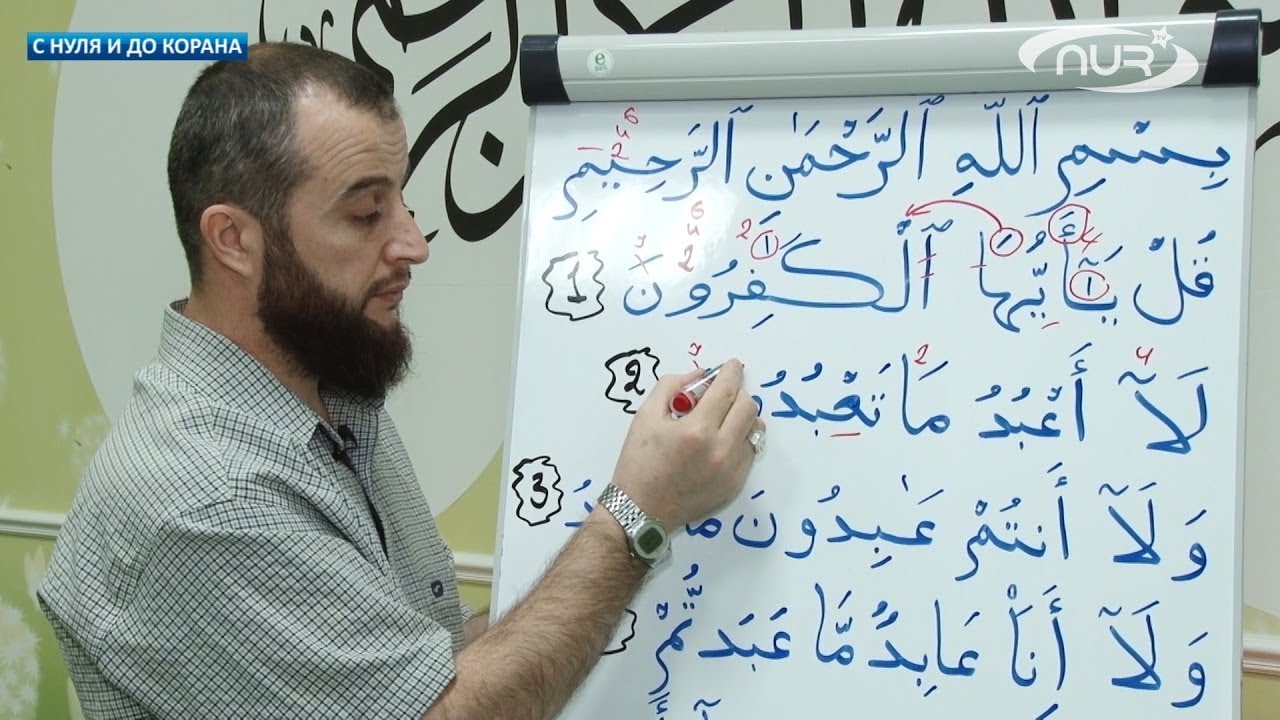 С НУЛЯ И ДО КОРАНА
NUR TV
بِسْمِ ٱللَّهِ ٱلرَّحْمَٰنِ ٱلرَّحِيمِ
6
4
2
قُلْ يَـٰٓأَيُّهَا ٱلْكَـٰفِرُونَ 1
لَآ أَعْبُدُ مَا تَعْبُدُونَ 2
وَلَآ أَنتُمْ عَـٰبِدُونَ 3
وَلَآ أَنَا۠ عَابِدٌ مَّا عَبَدتُّمْ